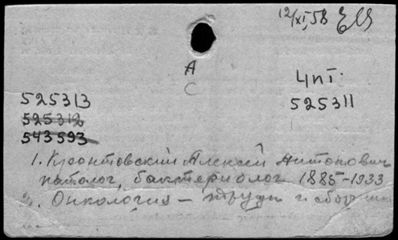 12/XI 58
А
С
4 пт.
525313
525311
525312
543593
1. Кронтовский Алексей Антонович
патолог, бактериолог 1885-1933
2. Онкология — труды и сборники